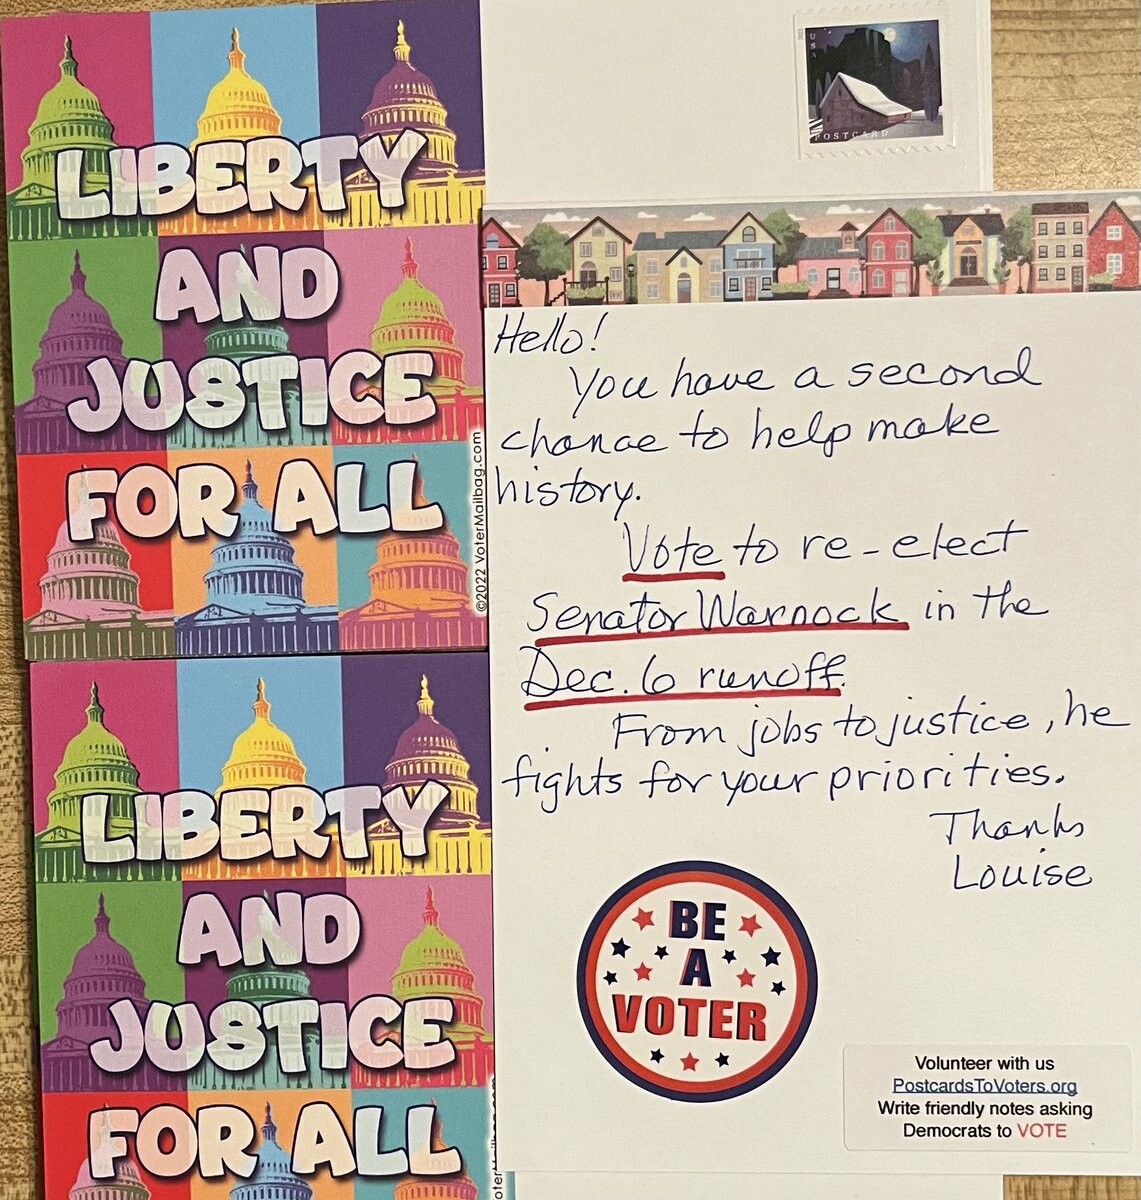 LIBERTY
AND
JUSTICE
FOR ALL
©2022 VoterMailbag.com
LIBERTY
AND
JUSTICE
FOR ALL
USA
POSTCARD
Hello!
You have a second
chance to help make
history.
Vote to re-elect
Senator Warnock in the
Dec. 6 runoff.
From jobs to justice, he
fights for your priorities.
Thanks
Louise
BE
A
VOTER
Volunteer with us
PostcardsToVoters.org
Write friendly notes asking
Democrats to VOTE